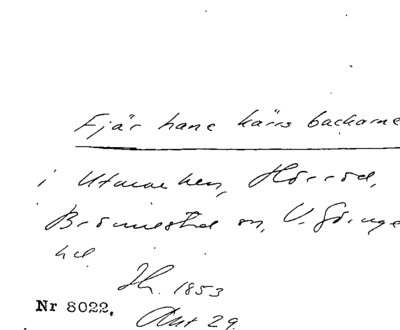 Fjär hane kärrs backarne
i Utmarken, Hörröd,
Brönnestad sn, V. Göinge
hd
Sk. 1853
Akt 29.
Nr 8022.